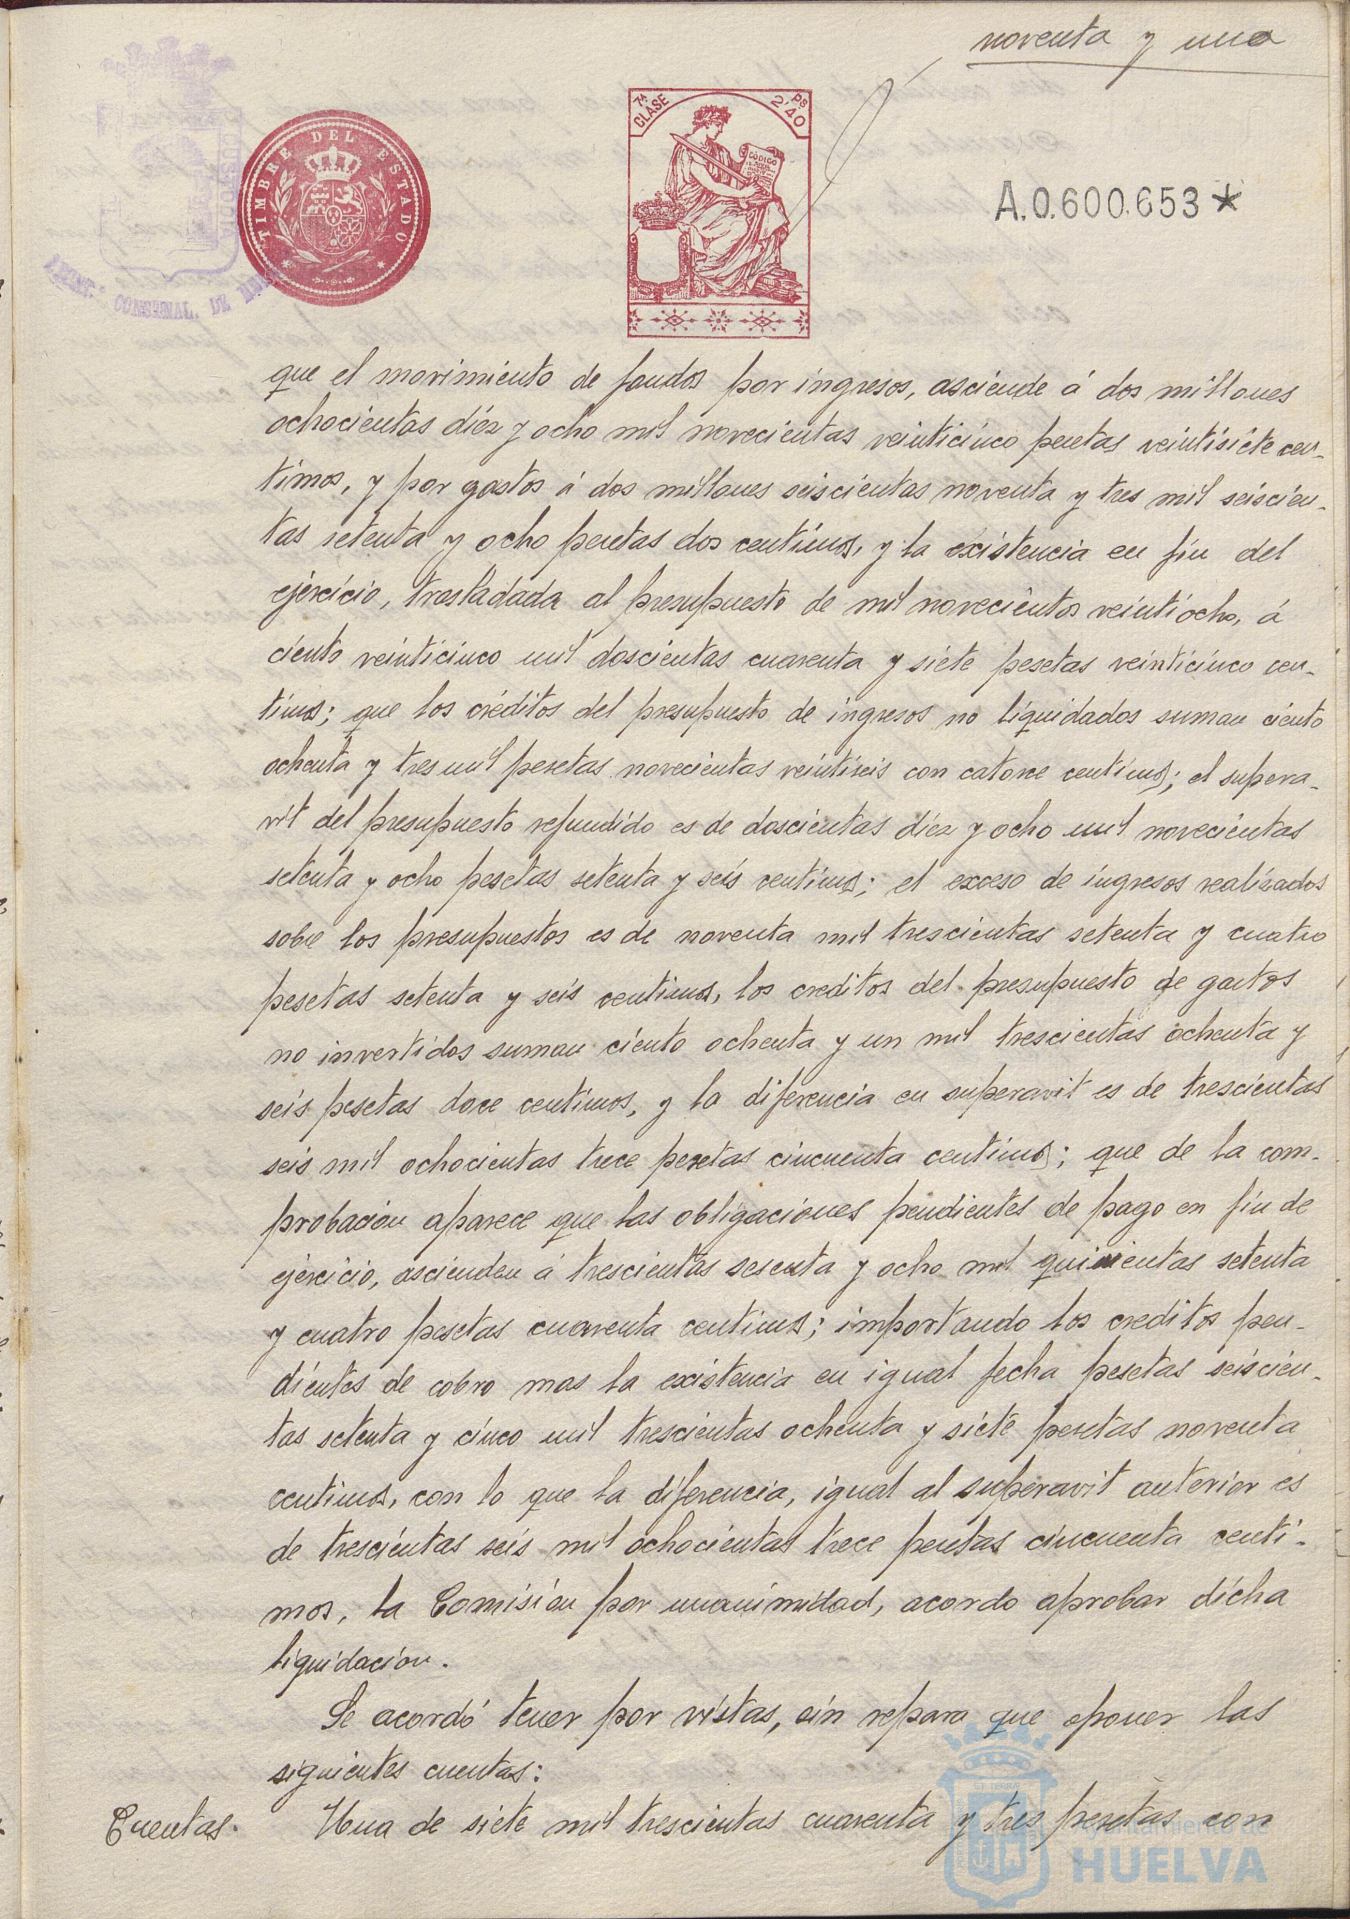 noventa y una
TIMBRE DEL ESTADO
7ª CLASE
2'40 ps
CÓDIGO
A.0.600.653*
que el movimiento de fondos por ingresos, asciende á dos millones
ochocientas diéz y ocho mil novecientas veinticinco pesetas veintisiete cen-
timos, y por gastos á dos millones seiscientas noventa y tres mil seiscien-
tas setenta y ocho pesetas dos centimos, y la existencia en fin del
ejercicio, trasladada al presupuesto de mil novecientos veintiocho, á
ciento veinticinco mil doscientas cuarenta y siete pesetas veinticinco cen-
timos; que los créditos del presupuesto de ingresos no liquidados suman ciento
ochenta y tres mil pesetas novecientas veintiseis con catorce centimos; el supera-
vit del presupuesto refundido es de doscientas diez y ocho mil novecientas
setenta y ocho pesetas setenta y seis centimos; el exceso de ingresos realizados
sobre los presupuestos es de noventa mil trescientas setenta y cuatro
pesetas setenta y seis centimos, los creditos del presupuesto de gastos
no invertidos suman ciento ochenta y un mil trescientas ochenta y
seis pesetas doce centimos, y la diferencia en superavit es de trescientas
seis mil ochocientas trece pesetas cincuenta centimos; que de la com-
probacion aparece que las obligaciones pendientes de pago en fin de
ejercicio, ascienden á trescientas sesenta y ocho mil quinientas setenta
y cuatro pesetas cuarenta centimos; importando los creditos pen-
dientes de cobro mas la existencia en igual fecha pesetas seiscien-
tas setenta y cinco mil trescientas ochenta y siete pesetas noventa
centimos, con lo que la diferencia, igual al superavit anterior es
de trescientas seis mil ochocientas trece pesetas cincuenta centi-
mos, la Comisión por unanimidad, acordo aprobar dicha
liquidacion.
Se acordó tener por vistas, sin reparo que oponer las
siguientes cuentas:
Cuentas. Una de siete mil trescientas cuarenta y tres pesetas con
Ayuntamiento de
HUELVA